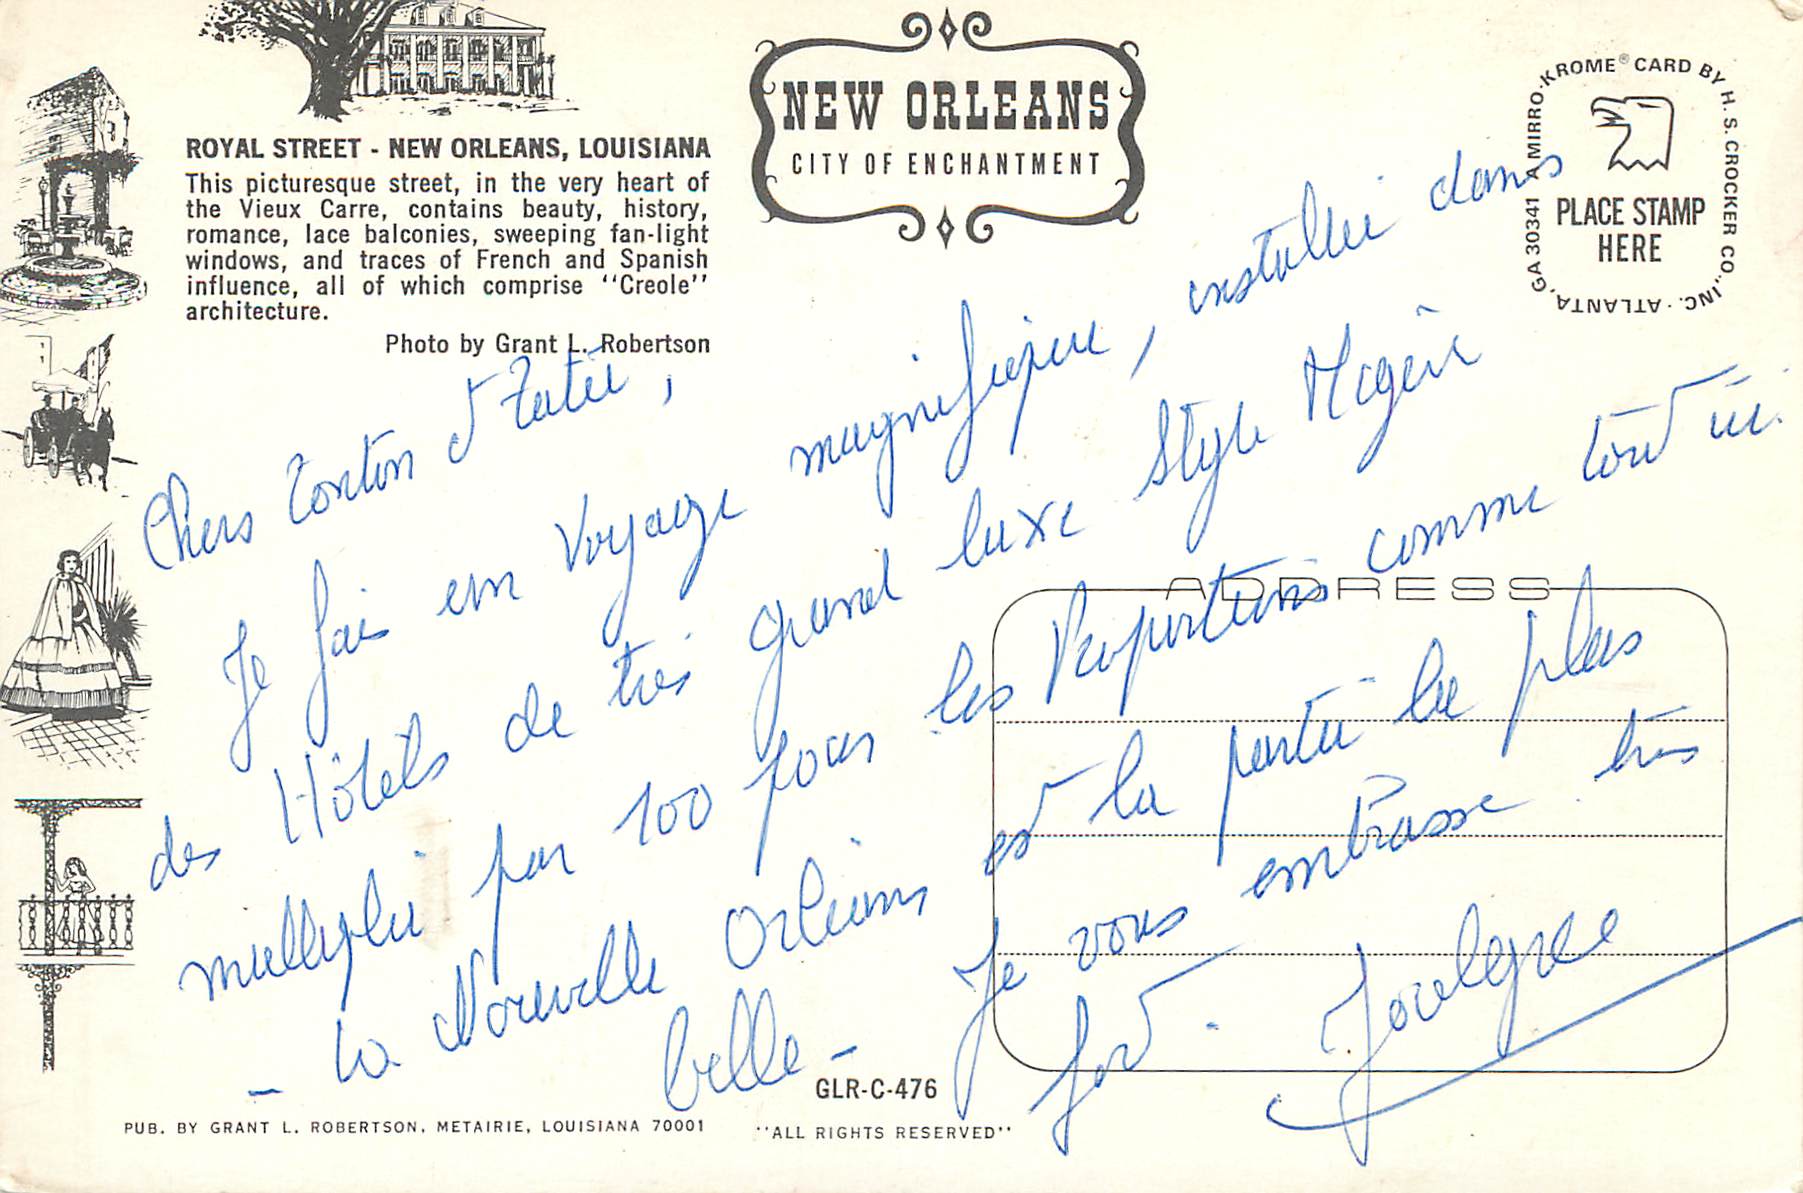 ROYAL STREET - NEW ORLEANS, LOUISIANA
This picturesque street, in the very heart of
the Vieux Carre, contains beauty, history,
romance, lace balconies, sweeping fan-light
windows, and traces of French and Spanish
influence, all of which comprise "Creole"
architecture.
Photo by Grant L. Robertson
NEW ORLEANS
CITY OF ENCHANTMENT
A MIRRO-KROME® CARD BY H. S. CROCKER CO., INC. · ATLANTA, GA 30341
PLACE STAMP
HERE
Chers tonton et Tatie,
Je fais un voyage magnifique, installée dans
des Hôtels de très grand luxe Style
multiplié par 100 pour les Proportions comme tout ici.
- La Nouvelle Orléans est la partie la plus
belle - Je vous embrasse très
fort.
ADDRESS
GLR-C-476
PUB. BY GRANT L. ROBERTSON, METAIRIE, LOUISIANA 70001
"ALL RIGHTS RESERVED"